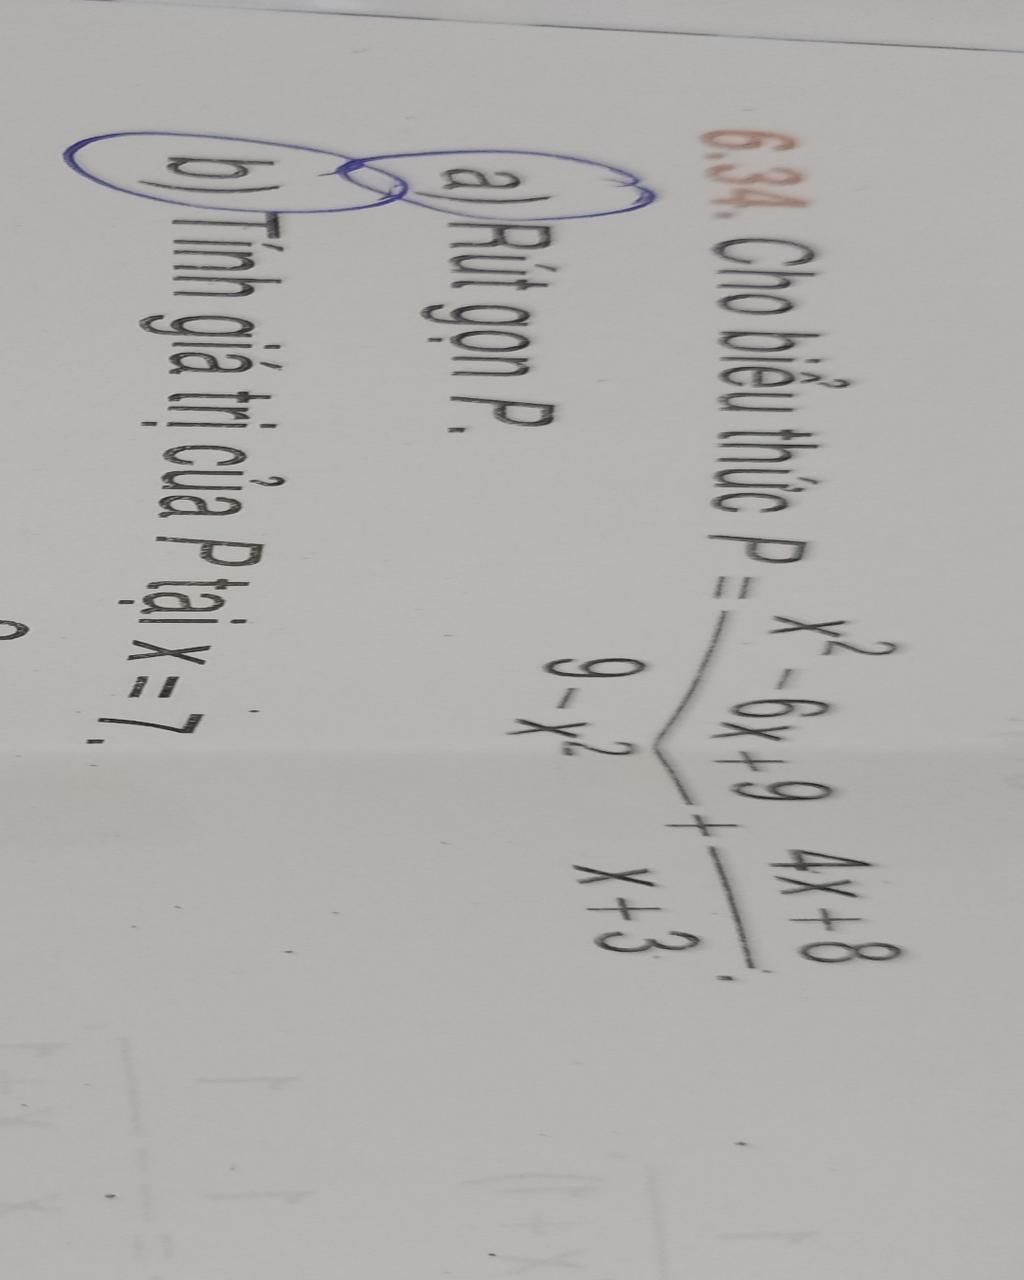 6.34. Cho biểu thức P = \frac{x² - 6x + 9}{9 - x²} + \frac{4x + 8}{x + 3}.
a) Rút gọn P.
b) Tính giá trị của P tại x = 7.